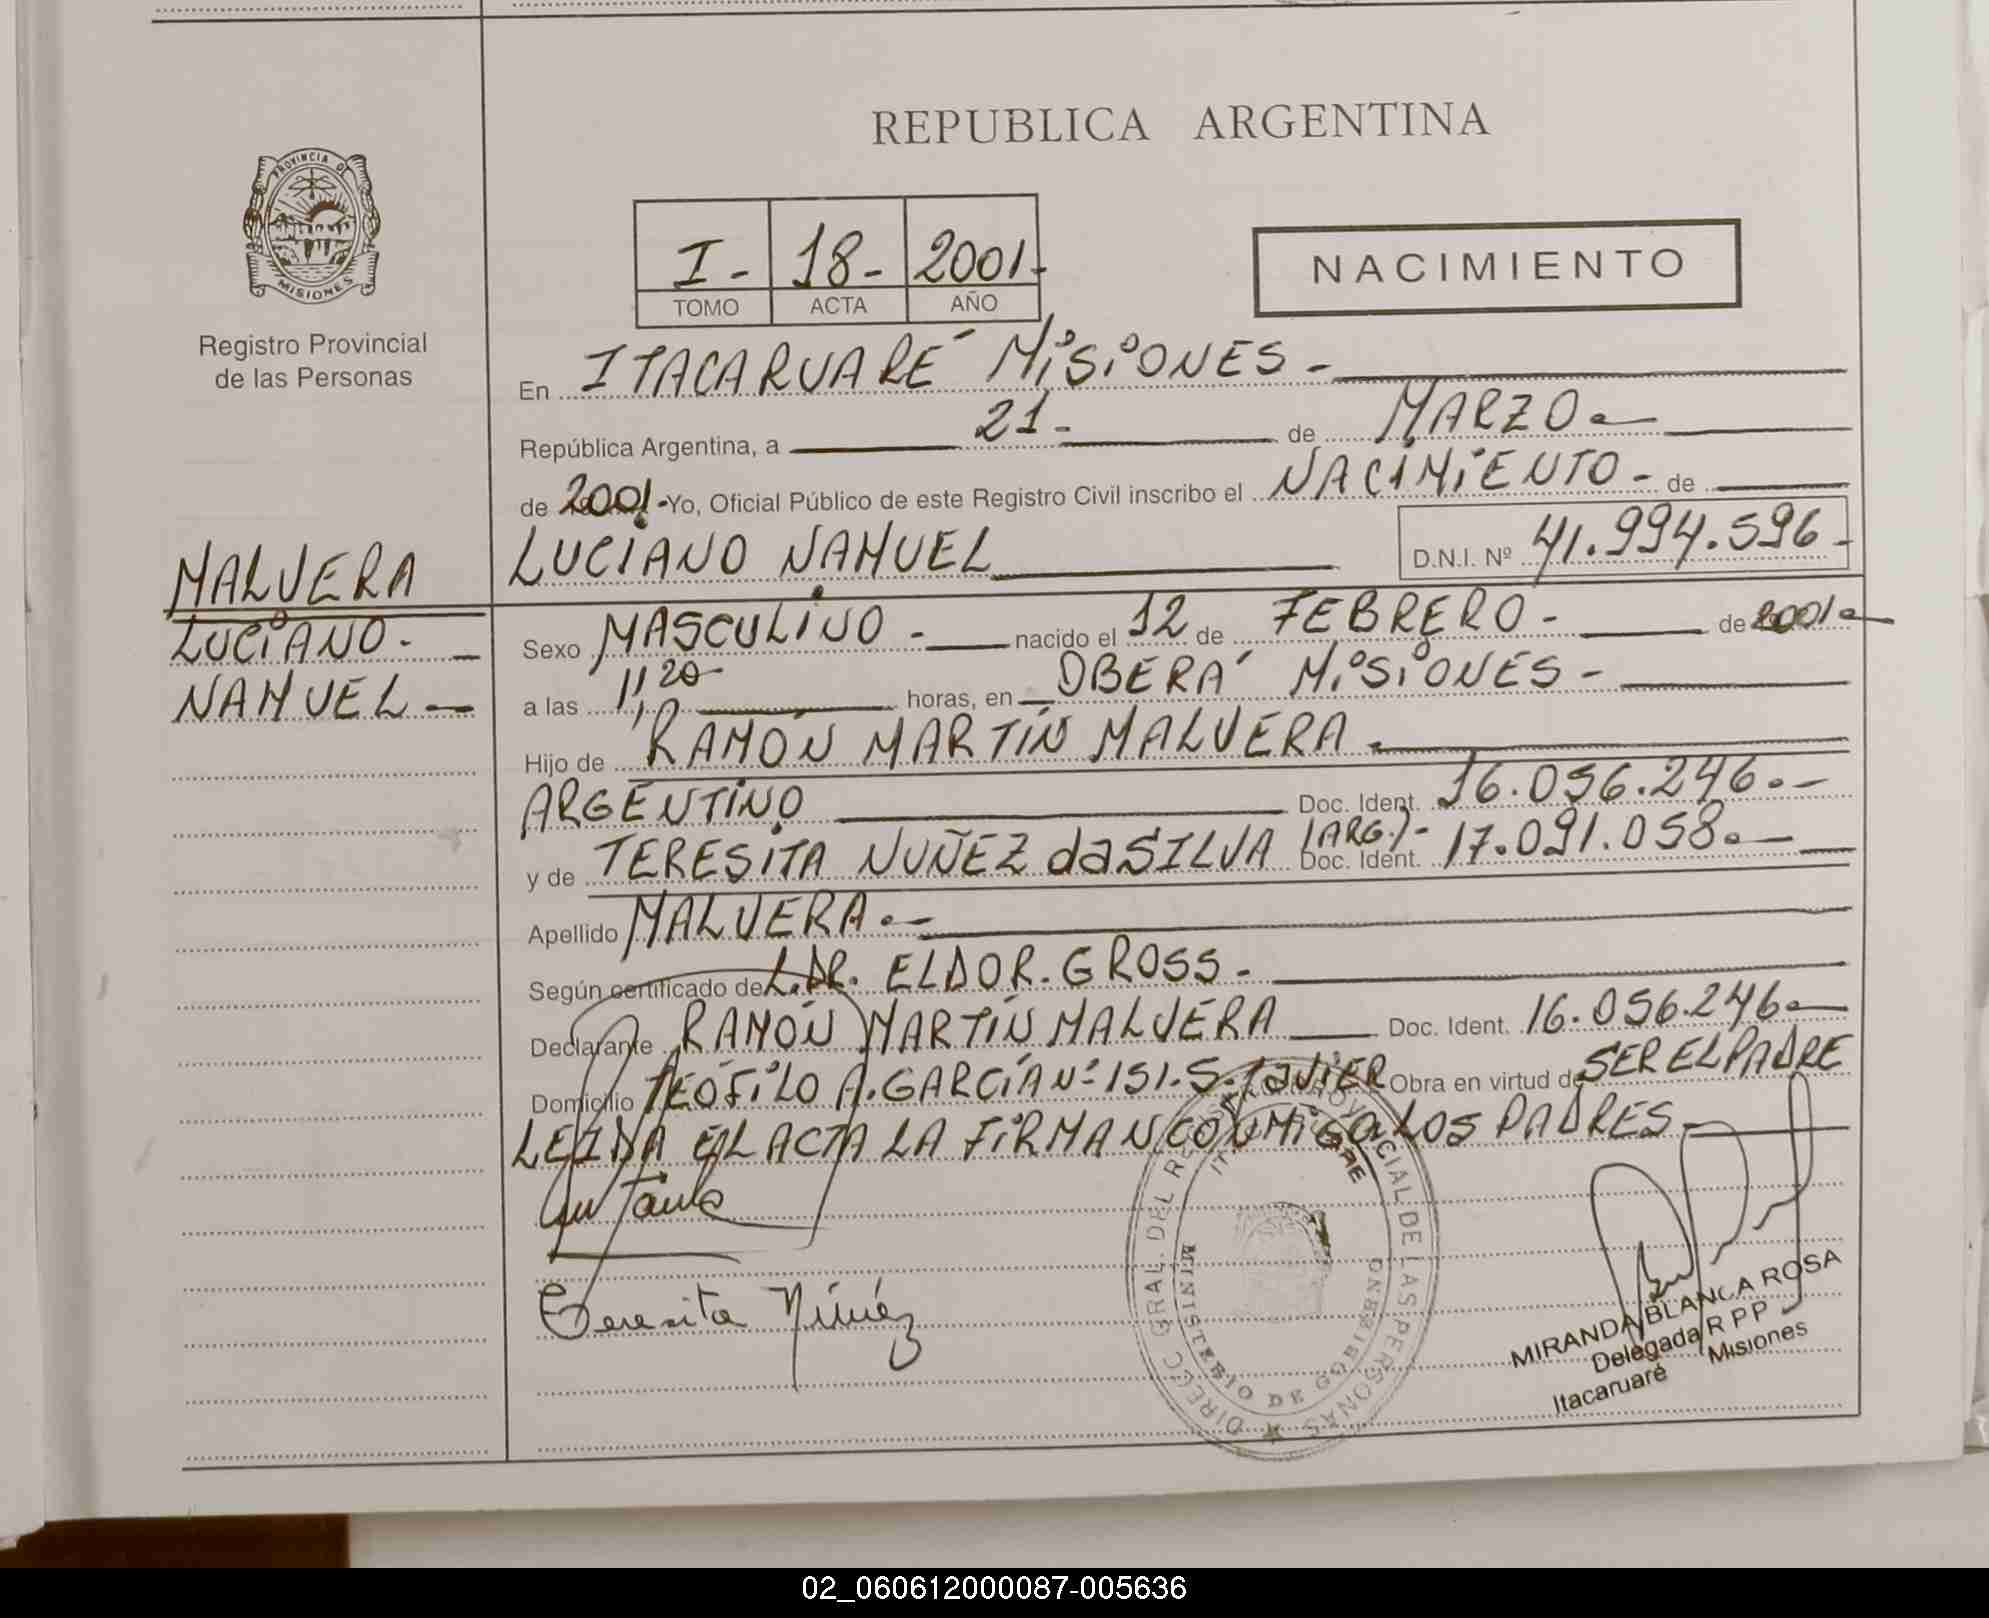 REPUBLICA ARGENTINA
PROVINCIA DE
MISIONES
Registro Provincial
de las Personas
I - 18 - 2001 -
TOMO ACTA AÑO
NACIMIENTO
En ITACARUARÉ MISIONES -
República Argentina, a 21 - de MARZO -
de 2001 - Yo, Oficial Público de este Registro Civil inscribo el NACIMIENTO - de
LUCIANO NAHUEL D.N.I. Nº 41.994.596 -
MALVERA
LUCIANO -
NAHUEL -
Sexo MASCULINO - nacido el 12 de FEBRERO - de 2001 -
a las 11,20 horas, en OBERÁ MISIONES -
Hijo de RAMÓN MARTÍN MALVERA -
ARGENTINO Doc. Ident. 16.056.246.-
y de TERESITA NUÑEZ daSILVA (ARG.)- Doc. Ident. 17.091.058.-
Apellido MALVERA.-
Según certificado de L.DR. ELDOR. GROSS -
Declarante RAMÓN MARTÍN MALVERA Doc. Ident. 16.056.246-
Domicilio TEÓFILO A. GARCÍA Nº 151. S. JAVIER Obra en virtud de SER EL PADRE
LEIDA EL ACTA LA FIRMAN CONMIGO LOS PADRES -
Teresita Núñez
DIRECC GRAL. DEL REGISTRO PROVINCIAL DE LAS PERSONAS
MINISTERIO DE GOBIERNO
MIRANDA BLANCA ROSA
Delegada R P P
Itacaruaré Misiones
02_060612000087-005636